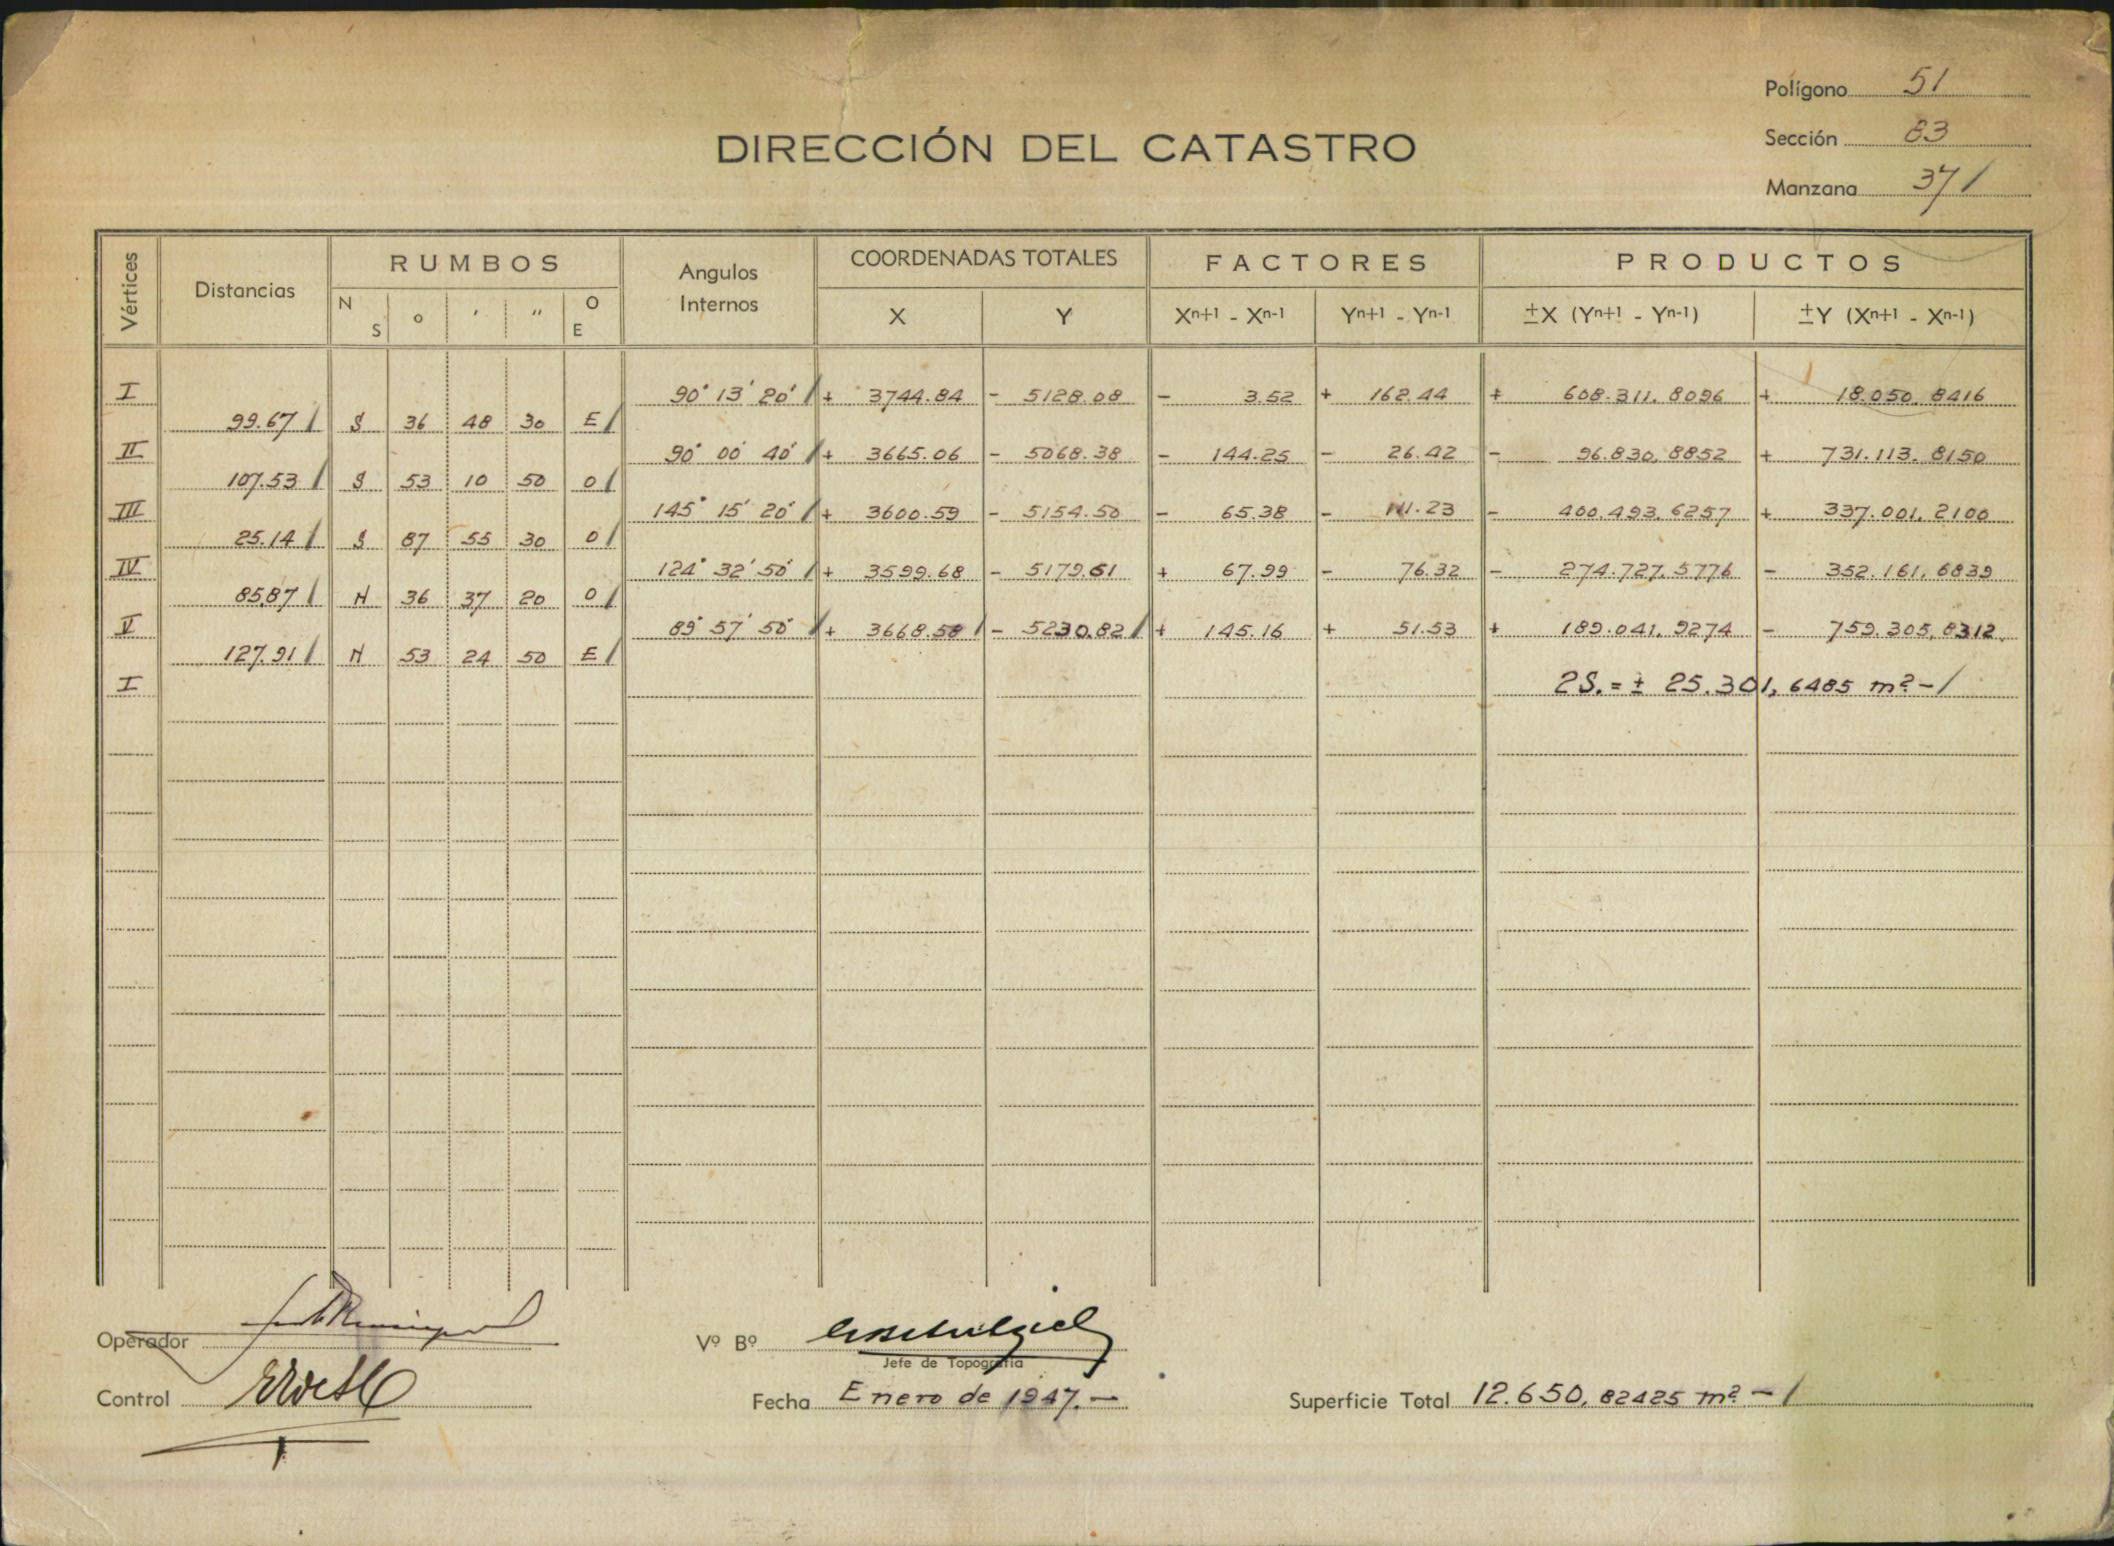 Polígono 51
DIRECCIÓN DEL CATASTRO
Sección 83
Manzana 37 /
Vértices Distancias RUMBOS Angulos Internos COORDENADAS TOTALES FACTORES PRODUCTOS
N S ° ' " O E X Y Xn+1 - Xn-1 Yn+1 - Yn-1 ±X (Yn+1 - Yn-1) ±Y (Xn+1 - Xn-1)
I 90° 13' 20' / + 3744.84 - 5128.08 - 3.52 + 162.44 + 608.311,8096 + 18.050,8416
99.67 / S 36 48 30 E /
II 90° 00' 40' / + 3665.06 - 5068.38 - 144.25 - 26.42 - 96.830,8852 + 731.113,8150
107.53 / S 53 10 50 O /
III 145° 15' 20' / + 3600.59 - 5154.50 - 65.38 - 111.23 - 400.493,6257 + 337.001,2100
25.14 / S 87 55 30 O /
IV 124° 32' 50' / + 3599.68 - 5179.61 + 67.99 - 76.32 - 274.727,5776 - 352.161,6839
85.87 / N 36 37 20 O /
V 89° 57' 50' / + 3668.58 / - 5230.82 / + 145.16 + 51.53 + 189.041,9274 - 759.305,8312
127.91 / N 53 24 50 E /
I 2S. = ± 25.301,6485 m² - /
Operador
Vº Bº
Jefe de Topografía
Control
Fecha Enero de 1947.-
Superficie Total 12.650,82425 m² - /